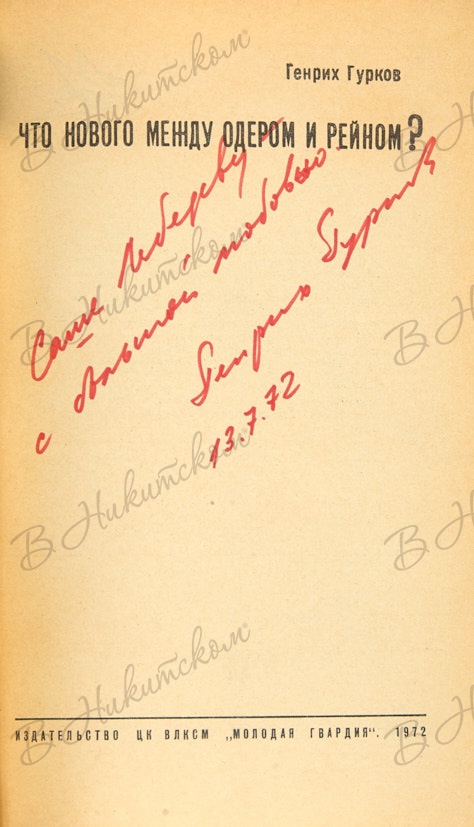 Генрих Гурков
ЧТО НОВОГО МЕЖДУ ОДЕРОМ И РЕЙНОМ?
Саше Лебедеву –
с большой любовью
Генрих Гурков
13.7.72
ИЗДАТЕЛЬСТВО ЦК ВЛКСМ „МОЛОДАЯ ГВАРДИЯ“. 1972
В. Никитском
В. Никитском
В. Никитском
В. Никитском
В. Никитском
В. Никитском
В. Никитском
В. Никитском